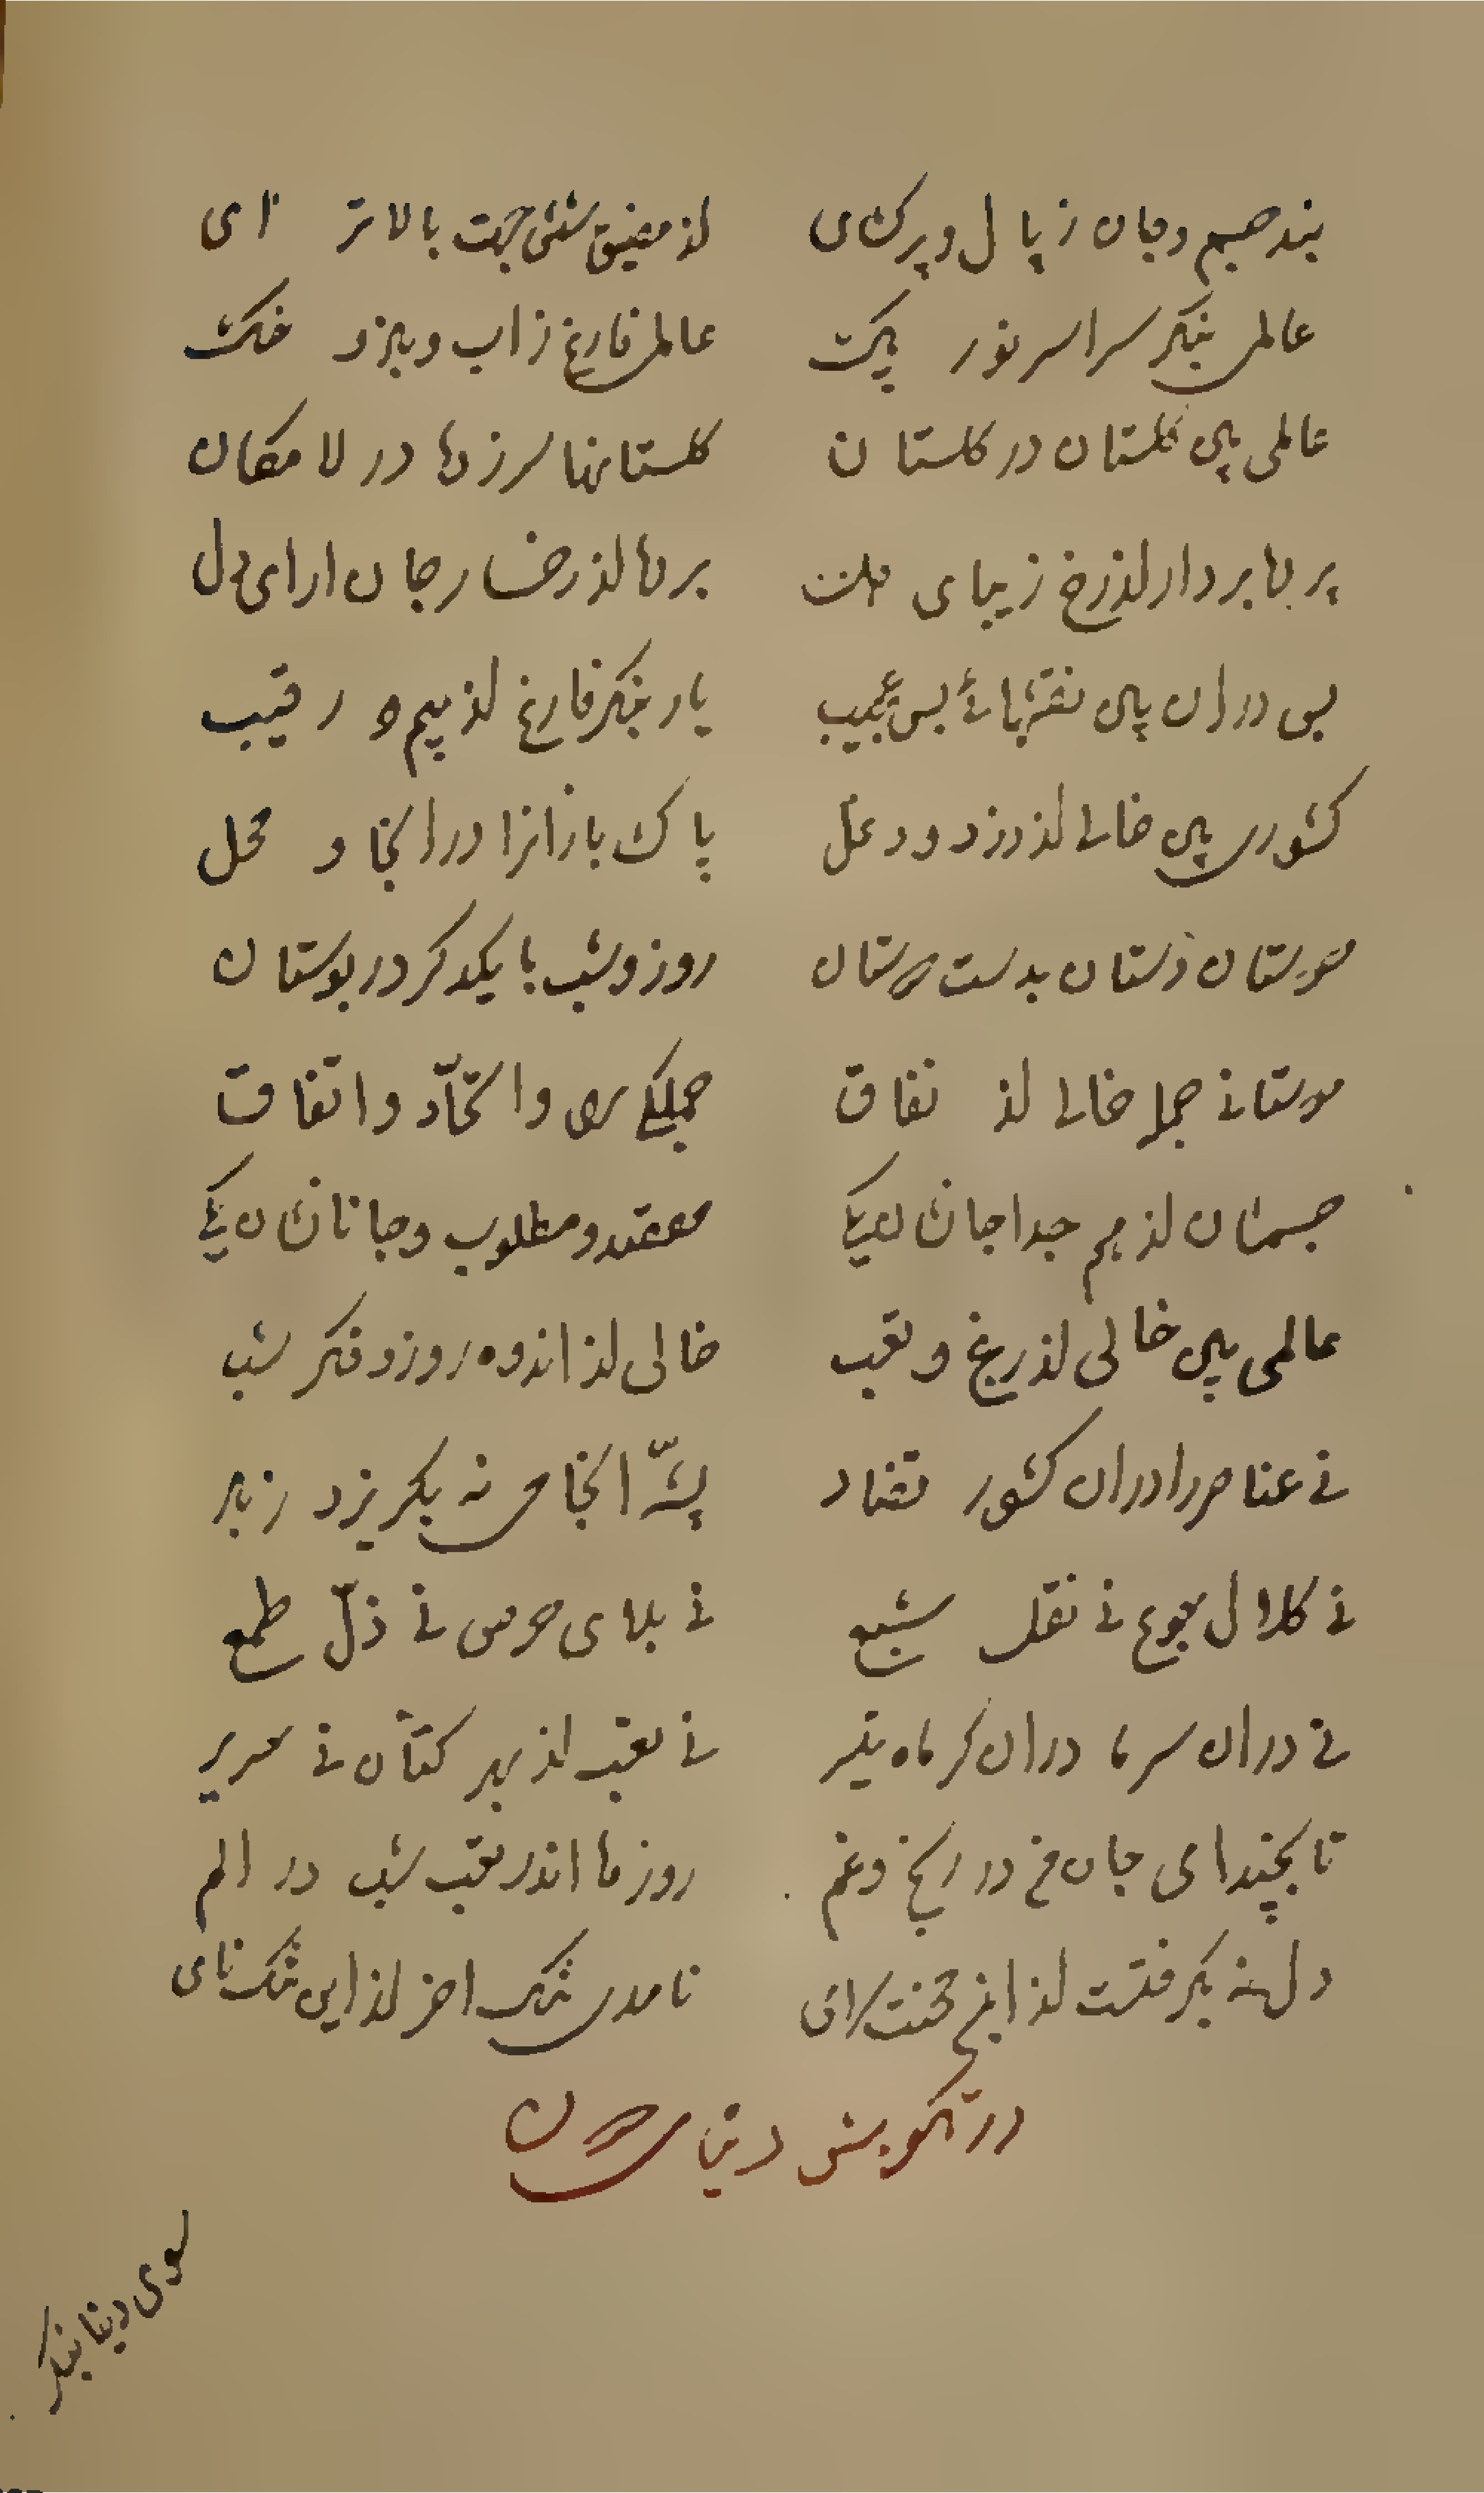 بند جسم و جان ز بال و پر کشای از مضیق شش جهت بالاتر ای
عالمی بنکر سراسر نور پاک عالمی فارغ ز اب و باد و خاک
عالمی بین کلستان در کلستان کلستانها سر زده در لامکان
پرده بردار از رخ زیبای دل پرده از رخسار جان ارای دل
پس دران بین نقشهائی بس عجیب یار بنکر فارغ از بیم و رقیب
کشوری بین خالی از دزد و دغل پاک بازانرا در انجا و محل
دوستان دستان بدست دوستان روز و شب با یکدکر در بوستان
دوستانی جمله خالی از نفاق جملکی و اتحّاد و اتفاق
جسمشان از هم جدا جانشان یکی مقصد و مطلوب و جانانشان یکی
عالمی بین خالی از رنج و تعب خالی از اندوه روز و فکر شب
نی عناصر را دران کشور تضاد پشّه انجا می نه بکریزد ز باد
نی کلال جوع نی ثقل شبع نی بلای حرص نی ذلّ طمع
نی دران سرما دران کرما نه تیر نی تعب از بهر کتّان نی حریر
تا بچند ای جان من در رنج و غم روزها اندر تعب شب در الم
دل نه بکرفتت از این محنت سرای نامدی تنک اخر از این تنک نای
در نکوهش دنیای دون
سوی دنیا بنکر